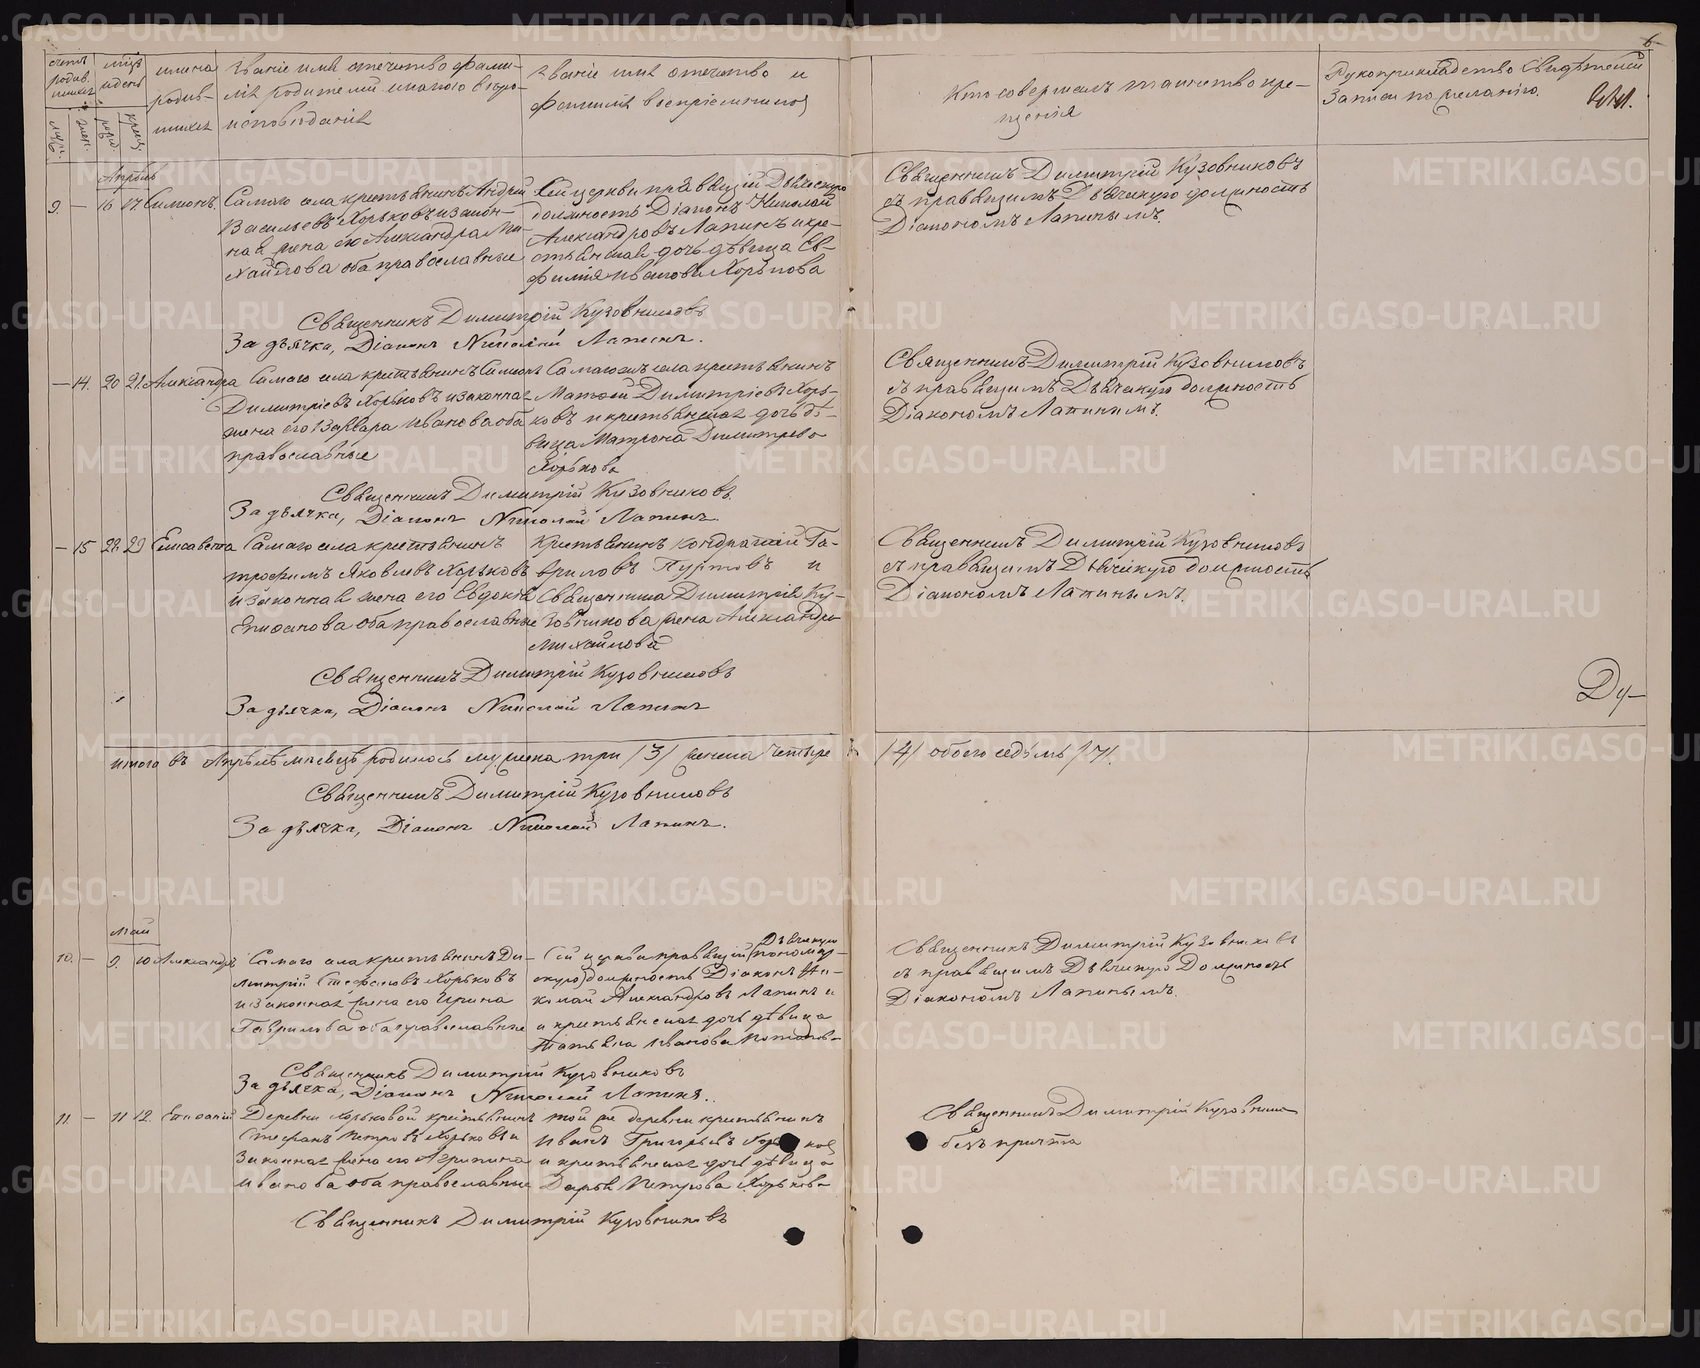 счетъ родив. шихся
муж. жен.
мѣс. и день
рожд. крещ.
имена родив- шихся
Званіе имя отечество фами-
лія родителей и какого вѣро-
исповѣданія
Званіе имя отечество и
фамилія воспріемниковъ
Кто совершалъ таинство кре-
щенія
Рукоприкладство Свидѣтелей
Записи по желанію.
6
Апрѣль
9. — 16 17 Симеонъ.
Самаго села крестьянинъ Андрей
Васильевъ Хорьковъ и закон-
ная жена его Александра Ми-
хайлова оба православные
Сей церкви правящій Дьяческую
должность Діаконъ Николай
Александровъ Лапинъ и кре-
стьянская дочь дѣвица Ев-
фимія Иванова Хорькова
Священникъ Димитрій Кузовниковъ
съ правящимъ Дьяческую должность
Діакономъ Лапинымъ.
Священникъ Димитрій Кузовниковъ
За дьячка, Діаконъ Николай Лапинъ.
— 14. 20 21 Александра
Самаго села крестьянинъ Симеонъ
Димитріевъ Хорьковъ и законная
жена его Варвара Иванова оба
православные
Самаго села крестьянинъ
Матвей Димитріевъ Хорь-
ковъ и крестьянская дочь дѣ-
вица Матрона Димитріева
Хорькова
Священникъ Димитрій Кузовниковъ
съ правящимъ Дьяческую должность
Діакономъ Лапинымъ.
Священникъ Димитрій Кузовниковъ.
За дьячка, Діаконъ Николай Лапинъ.
— 15 28 29 Елисавета
Самаго села крестьянинъ
Трофимъ Яковлевъ Хорьковъ
и законная жена его Евдокія
Епифанова оба православные
Крестьянинъ Кондратій Га-
вриловъ Пуртовъ и
Священника Димитрія Ку-
зовникова жена Александра
Михайлова
Священникъ Димитрій Кузовниковъ
съ правящимъ Дьяческую должность
Діакономъ Лапинымъ.
Священникъ Димитрій Кузовниковъ
За дьячка, Діаконъ Николай Лапинъ
Ду-
итого въ Апрѣлѣ мѣсяцѣ родилось мужеска три /3/ женска четыре /4/ обоего седьмь /7/.
Священникъ Димитрій Кузовниковъ
За дьячка, Діаконъ Николай Лапинъ.
Май
10. — 9. 10 Александръ
Самаго села крестьянинъ Ди-
митрій Стефановъ Хорьковъ
и законная жена его Ирина
Гаврилова оба православные
Дьяческую
Сей церкви правящій (пономар-
скую) должность Діаконъ Ни-
колай Александровъ Лапинъ и
и крестьянская дочь дѣвица
Татьяна Иванова
Священникъ Димитрій Кузовниковъ
съ правящимъ Дьяческую Должность
Діакономъ Лапинымъ.
Священникъ Димитрій Кузовниковъ
За дьячка, Діаконъ Николай Лапинъ.
11. — 11 12. Епифаній
Деревни Хорьковой крестьянинъ
Стефанъ Петровъ Хорьковъ и
Законная жена его Агрипина
Иванова оба православные
той же деревни крестьянинъ
Иванъ Григорьевъ Хорьковъ
и крестьянская дочь дѣвица
Дарья Петрова Хорькова
Священникъ Димитрій Кузовниковъ
безъ причта
Священникъ Димитрій Кузовниковъ
METRIKI.GASO-URAL.RU